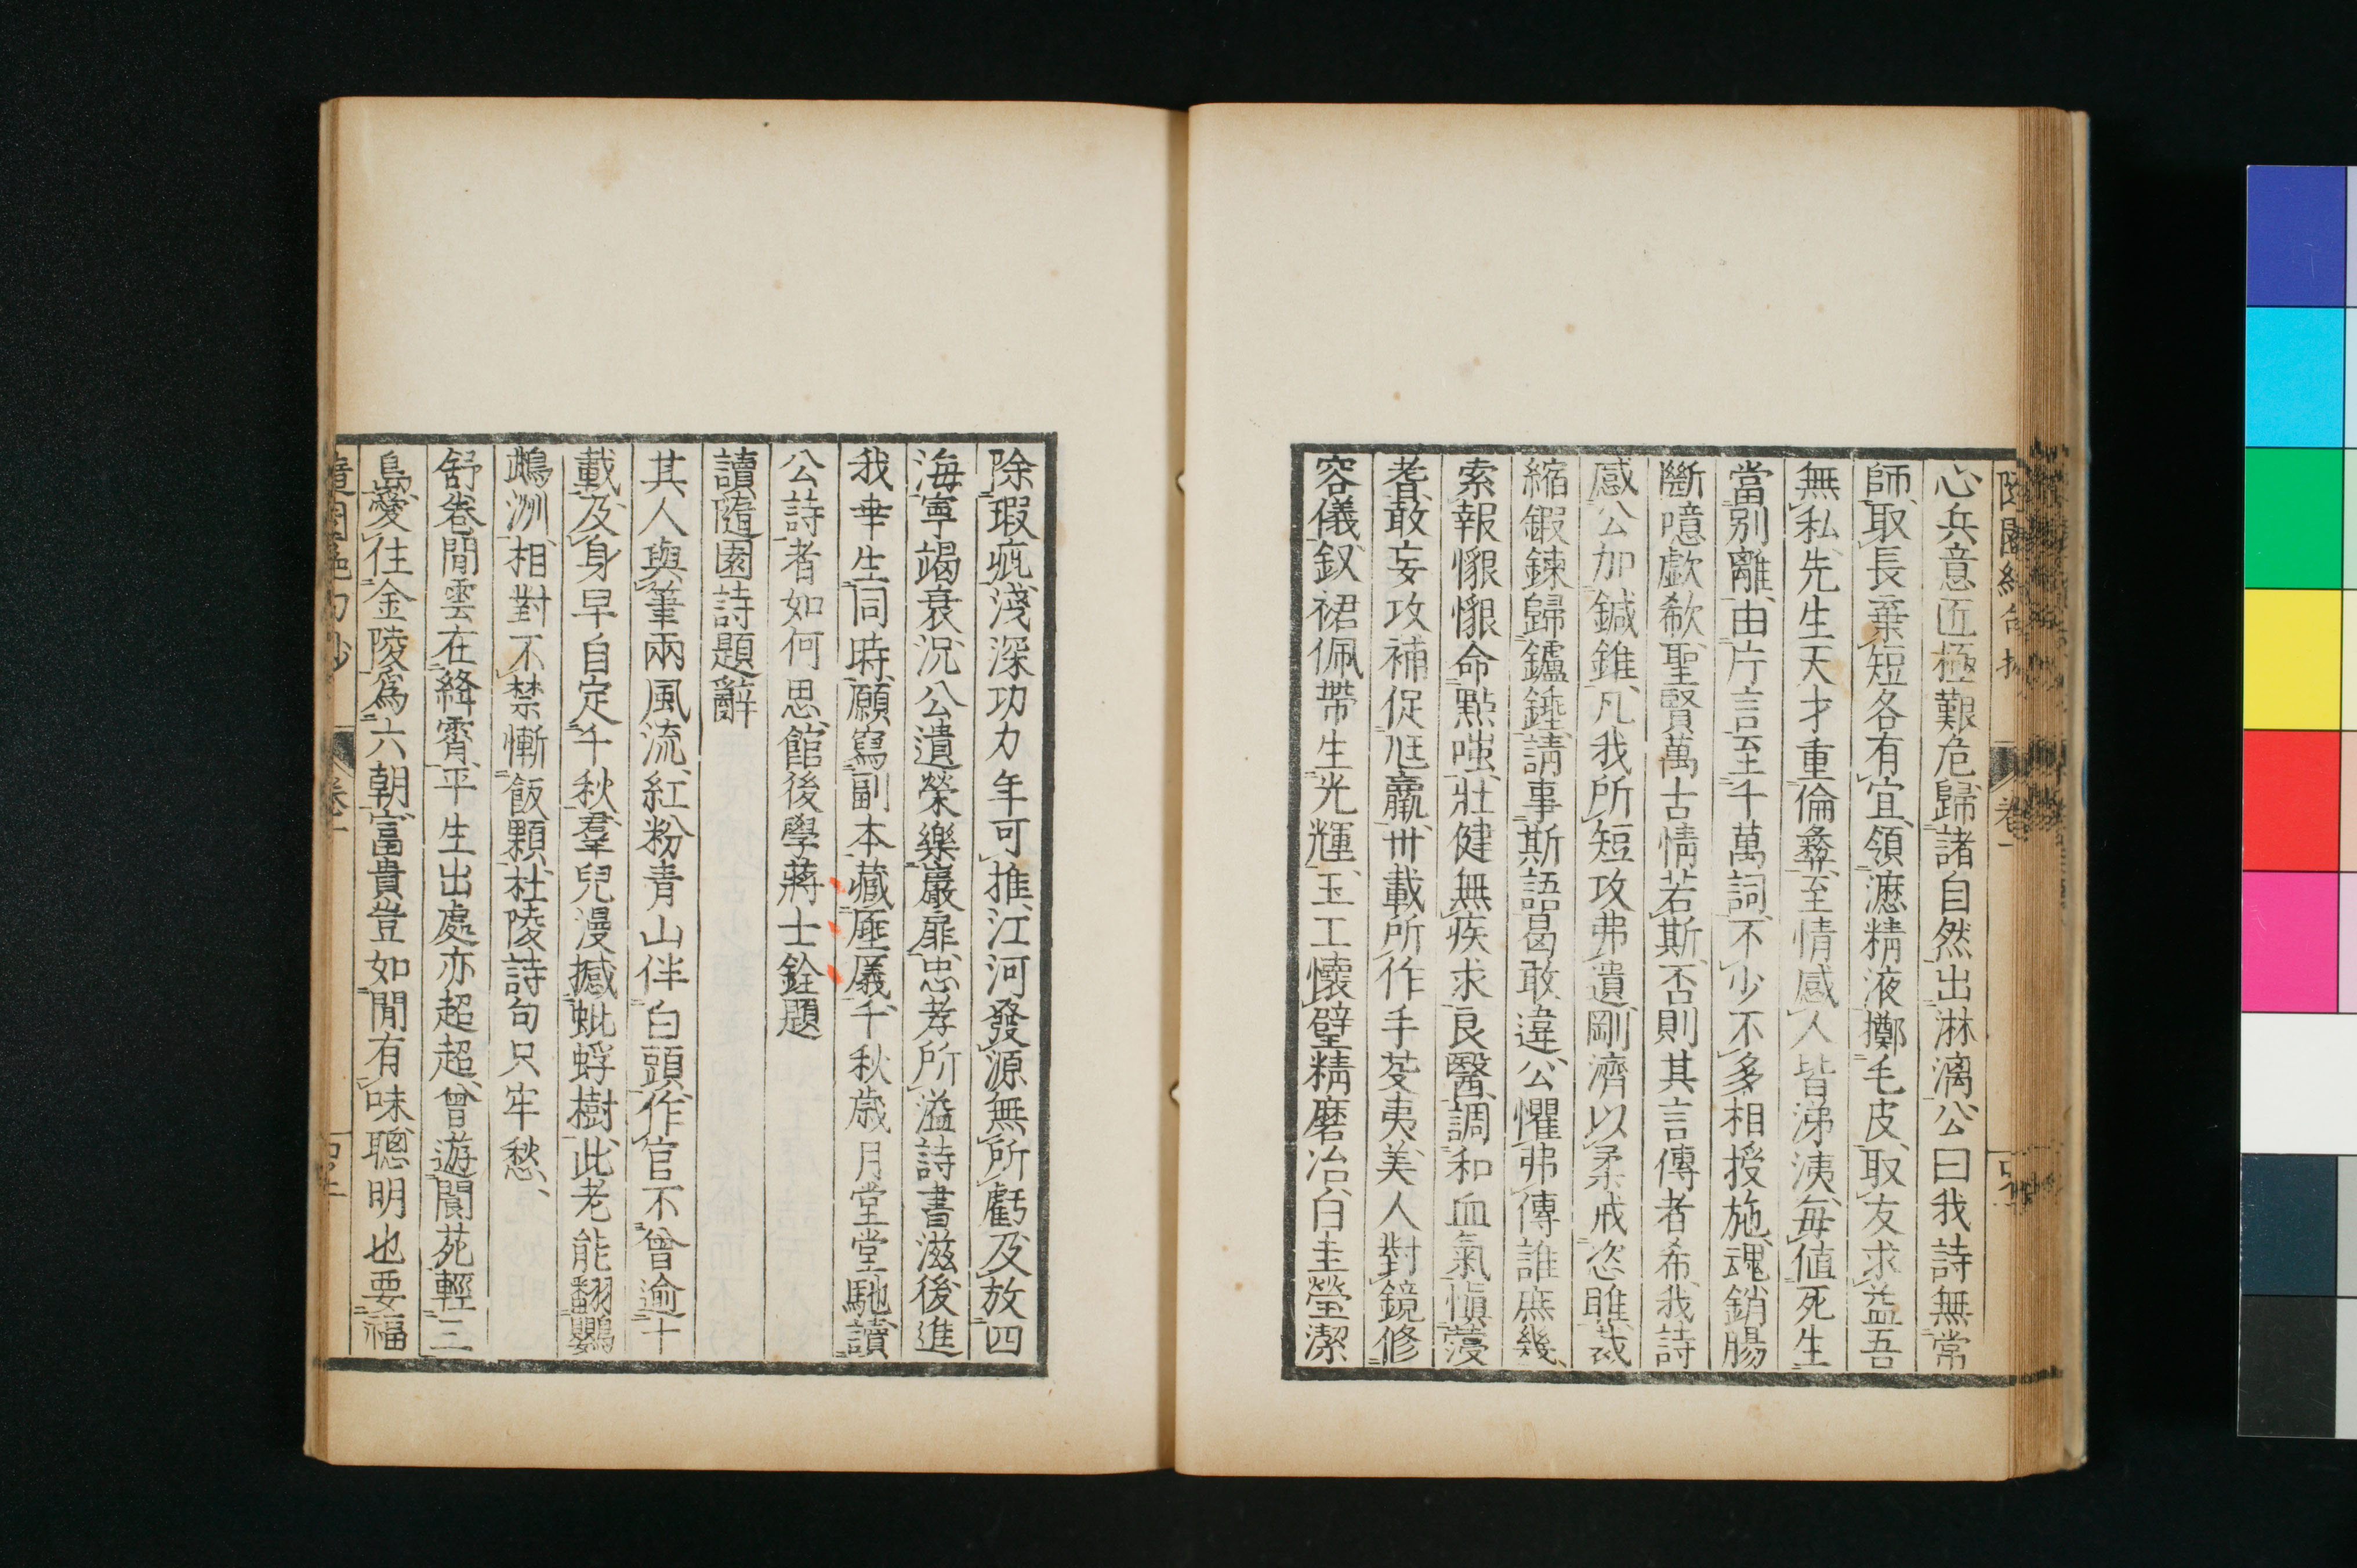 心兵意匠極艱危歸諸自然出淋漓公曰我詩無常
師取長棄短各有宜領漉精液擲毛皮取友求益吾
無私先生天才重倫彝至情感人皆涕洟每值死生
當別離由片言至千萬詞不少不多相授施魂銷腸
斷噫歔欷聖賢萬古情若斯否則其言傳者希我詩
感公加鍼錐凡我所短攻弗遺剛濟以柔戒恣睢裁
縮鍛鍊歸鑪錘請事斯語曷敢違公懼弗傳誰庶幾
索報懇懇命點嗤壯健無疾求良醫調和血氣愼
耆敢妄攻補促尫羸卅載所作手芟夷美人對鏡修
容儀釵裙佩帶生光輝玉工懷璧精磨冶白圭瑩潔
除瑕疵淺深功力年可推江河發源無所虧及放四
海寧竭衰況公遺榮樂巖扉忠孝所溢詩書滋後進
我幸生同時願寫副本藏厓㕒千秋歲月堂堂馳讀
公詩者如何思館後學蔣士銓題
讀隨園詩題辭
其人與筆兩風流紅粉青山伴白頭作官不曾逾十
載及身早自定千秋羣兒漫撼蚍蜉樹此老能翻鸚
鵡洲相對不禁慚飯顆杜陵詩句只牢愁
舒卷閒雲在絳霄平生出處亦超超曾遊閬苑輕三
島愛住金陵爲六朝富貴豈如閒有味聰明也要福